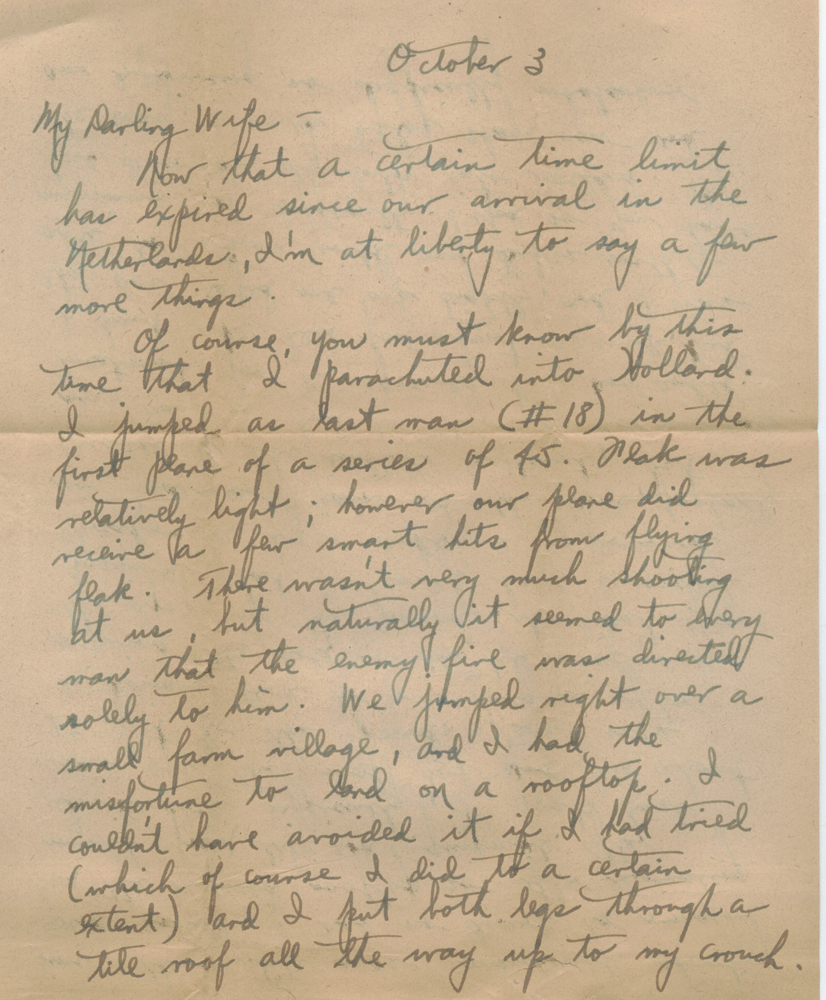 October 3
My Darling Wife –
Now that a certain time limit
has expired since our arrival in the
Netherlands, I'm at liberty to say a few
more things.
Of course, you must know by this
time that I parachuted into Holland.
I jumped as last man (#18) in the
first plane of a series of 45. Flak was
relatively light; however our plane did
receive a few smart hits from flying
flak. There wasn't very much shooting
at us, but naturally it seemed to every
man that the enemy fire was directed
solely to him. We jumped right over a
small farm village, and I had the
misfortune to land on a rooftop. I
couldn't have avoided it if I had tried
(which of course I did to a certain
extent) and I put both legs through a
tile roof all the way up to my crouch.